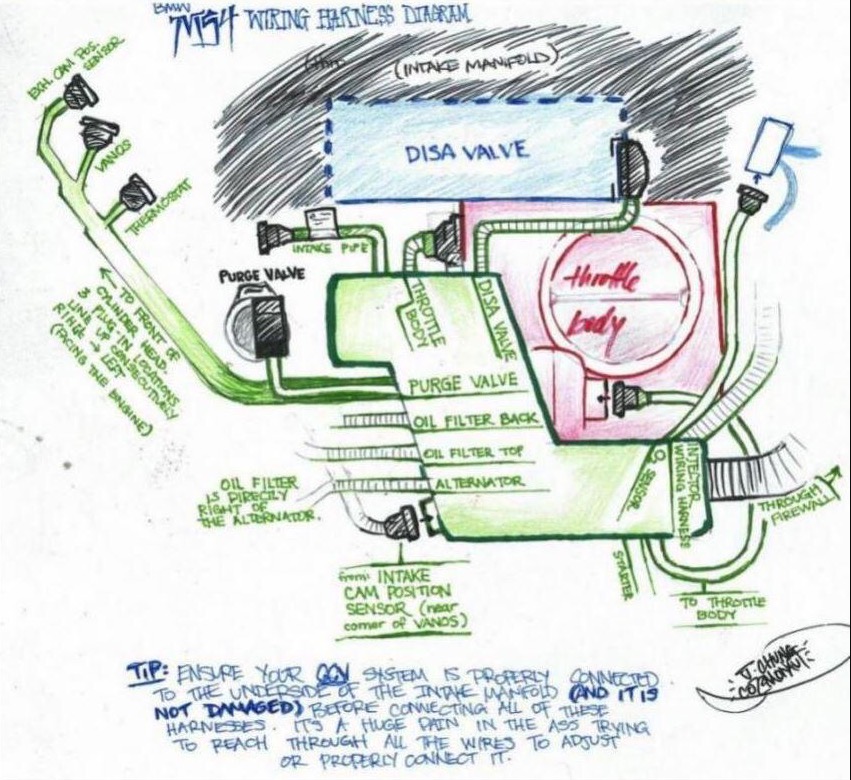 BMW
M54 WIRING HARNESS DIAGRAM
(INTAKE MANIFOLD)
EXH. CAM POS.
SENSOR
VANOS
THERMOSTAT
DISA VALVE
INTAKE PIPE
PURGE VALVE
THROTTLE
BODY
DISA VALVE
throttle
body
← TO FRONT OF
CYLINDER HEAD.
3 PLUG IN LOCATIONS
LINE UP CONSECUTIVELY
RIGHT → LEFT
(FACING THE ENGINE)
PURGE VALVE
OIL FILTER BACK
OIL FILTER TOP
ALTERNATOR
O2 SENSOR
INJECTOR
WIRING HARNESS
OIL FILTER
IS DIRECTLY
RIGHT OF
THE ALTERNATOR.
THROUGH
FIREWALL
from: INTAKE
CAM POSITION
SENSOR (near
corner of VANOS)
STARTER
TO THROTTLE
BODY
J. CHUNG
TIP: ENSURE YOUR CCV SYSTEM IS PROPERLY CONNECTED
TO THE UNDERSIDE OF THE INTAKE MANFOLD (AND IT IS
NOT DAMAGED) BEFORE CONNECTING ALL OF THESE
HARNESSES. IT'S A HUGE PAIN IN THE ASS TRYING
TO REACH THROUGH ALL THE WIRES TO ADJUST
OR PROPERLY CONNECT IT.